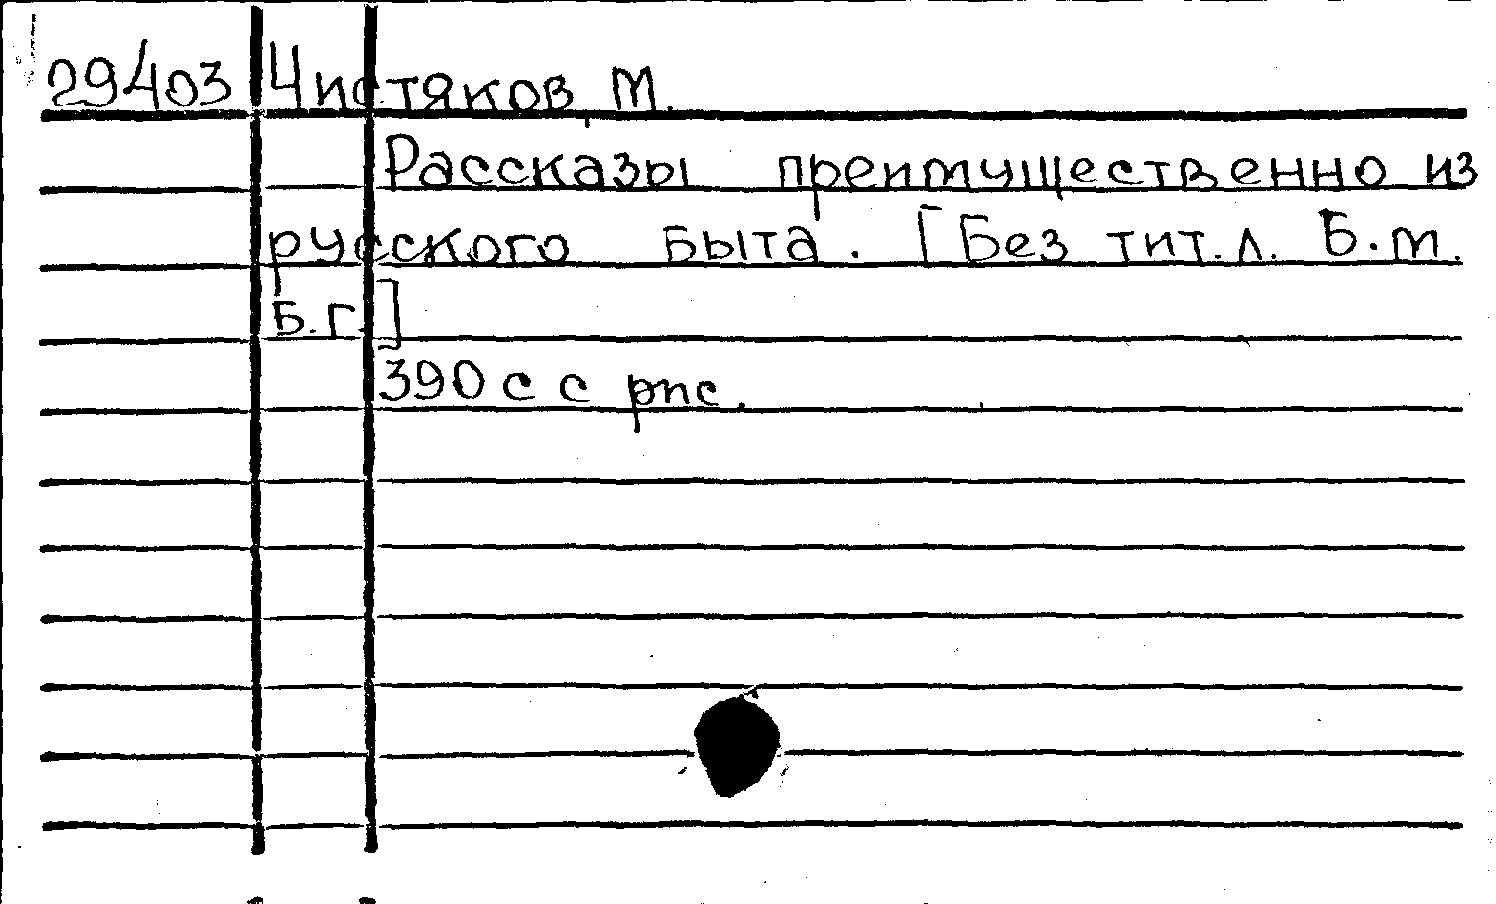 29403 Чистяков, М.
Рассказы преимущественно из
русского быта. [Без тит. л. Б. м.
Б. г.]
390 с с рис.